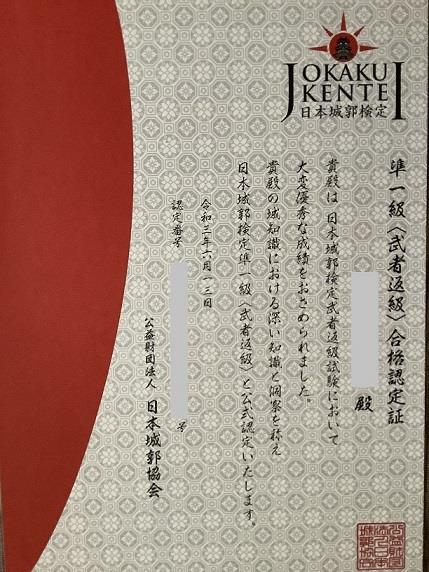 JOKAKU
KENTEI
日本城郭検定
準一級〈武者返級〉合格認定証
殿
貴殿は 日本城郭検定武者返級試験において
大変優秀な成績をおさめられました。
貴殿の城知識における深い知識と洞察を称え
日本城郭検定準一級〈武者返級〉と公式認定いたします。
令和三年六月一三日
認定番号 号
公益財団法人 日本城郭協会